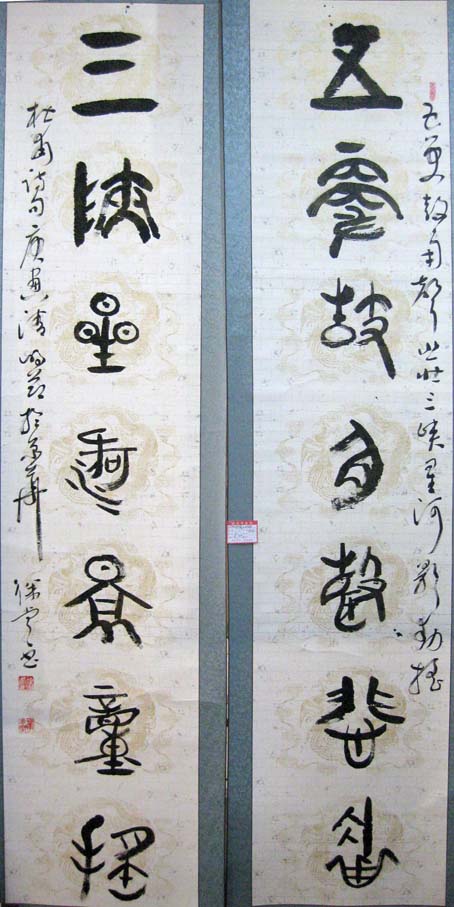 五更鼓角聲悲壯三峽星河影動搖
五更鼓角聲悲壯
三峽星河影動搖
杜甫詩句庚寅清明節於京華